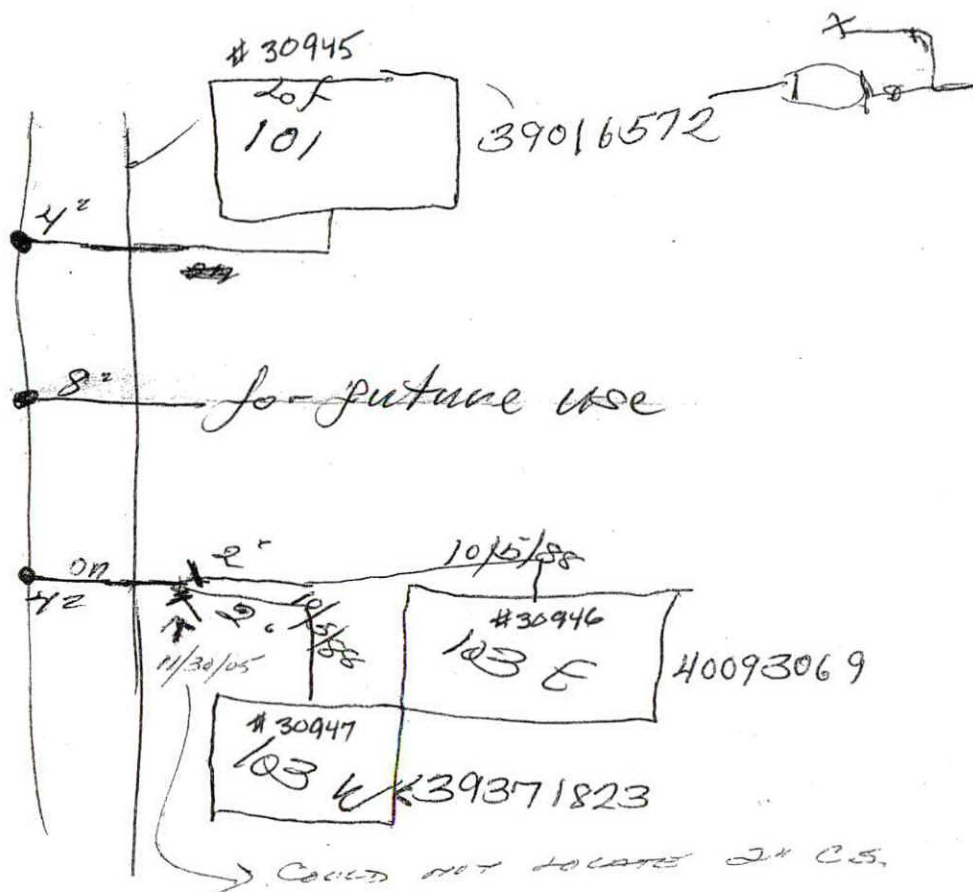 #30945
101
39016572
4"
8"
for future use
on
2"
10/5/88
2"
10/5/88
11/30/05
#30946
103 E
40093069
#30947
103 W
39371823
COULD NOT LOCATE 2" C.S.